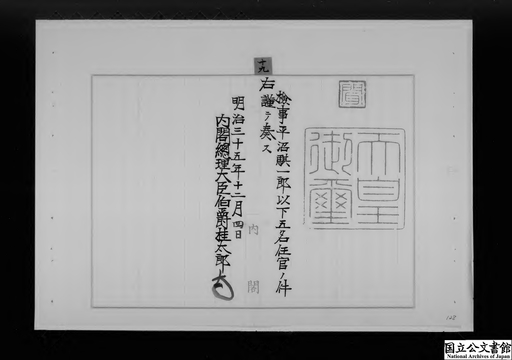 十九
天皇
御璽
検事平沼騏一郎以下五名任官ノ件
右謹テ奏ス
明治三十五年十二月四日
内閣総理大臣伯爵桂太郎
内閣
国立公文書館
National Archives of Japan